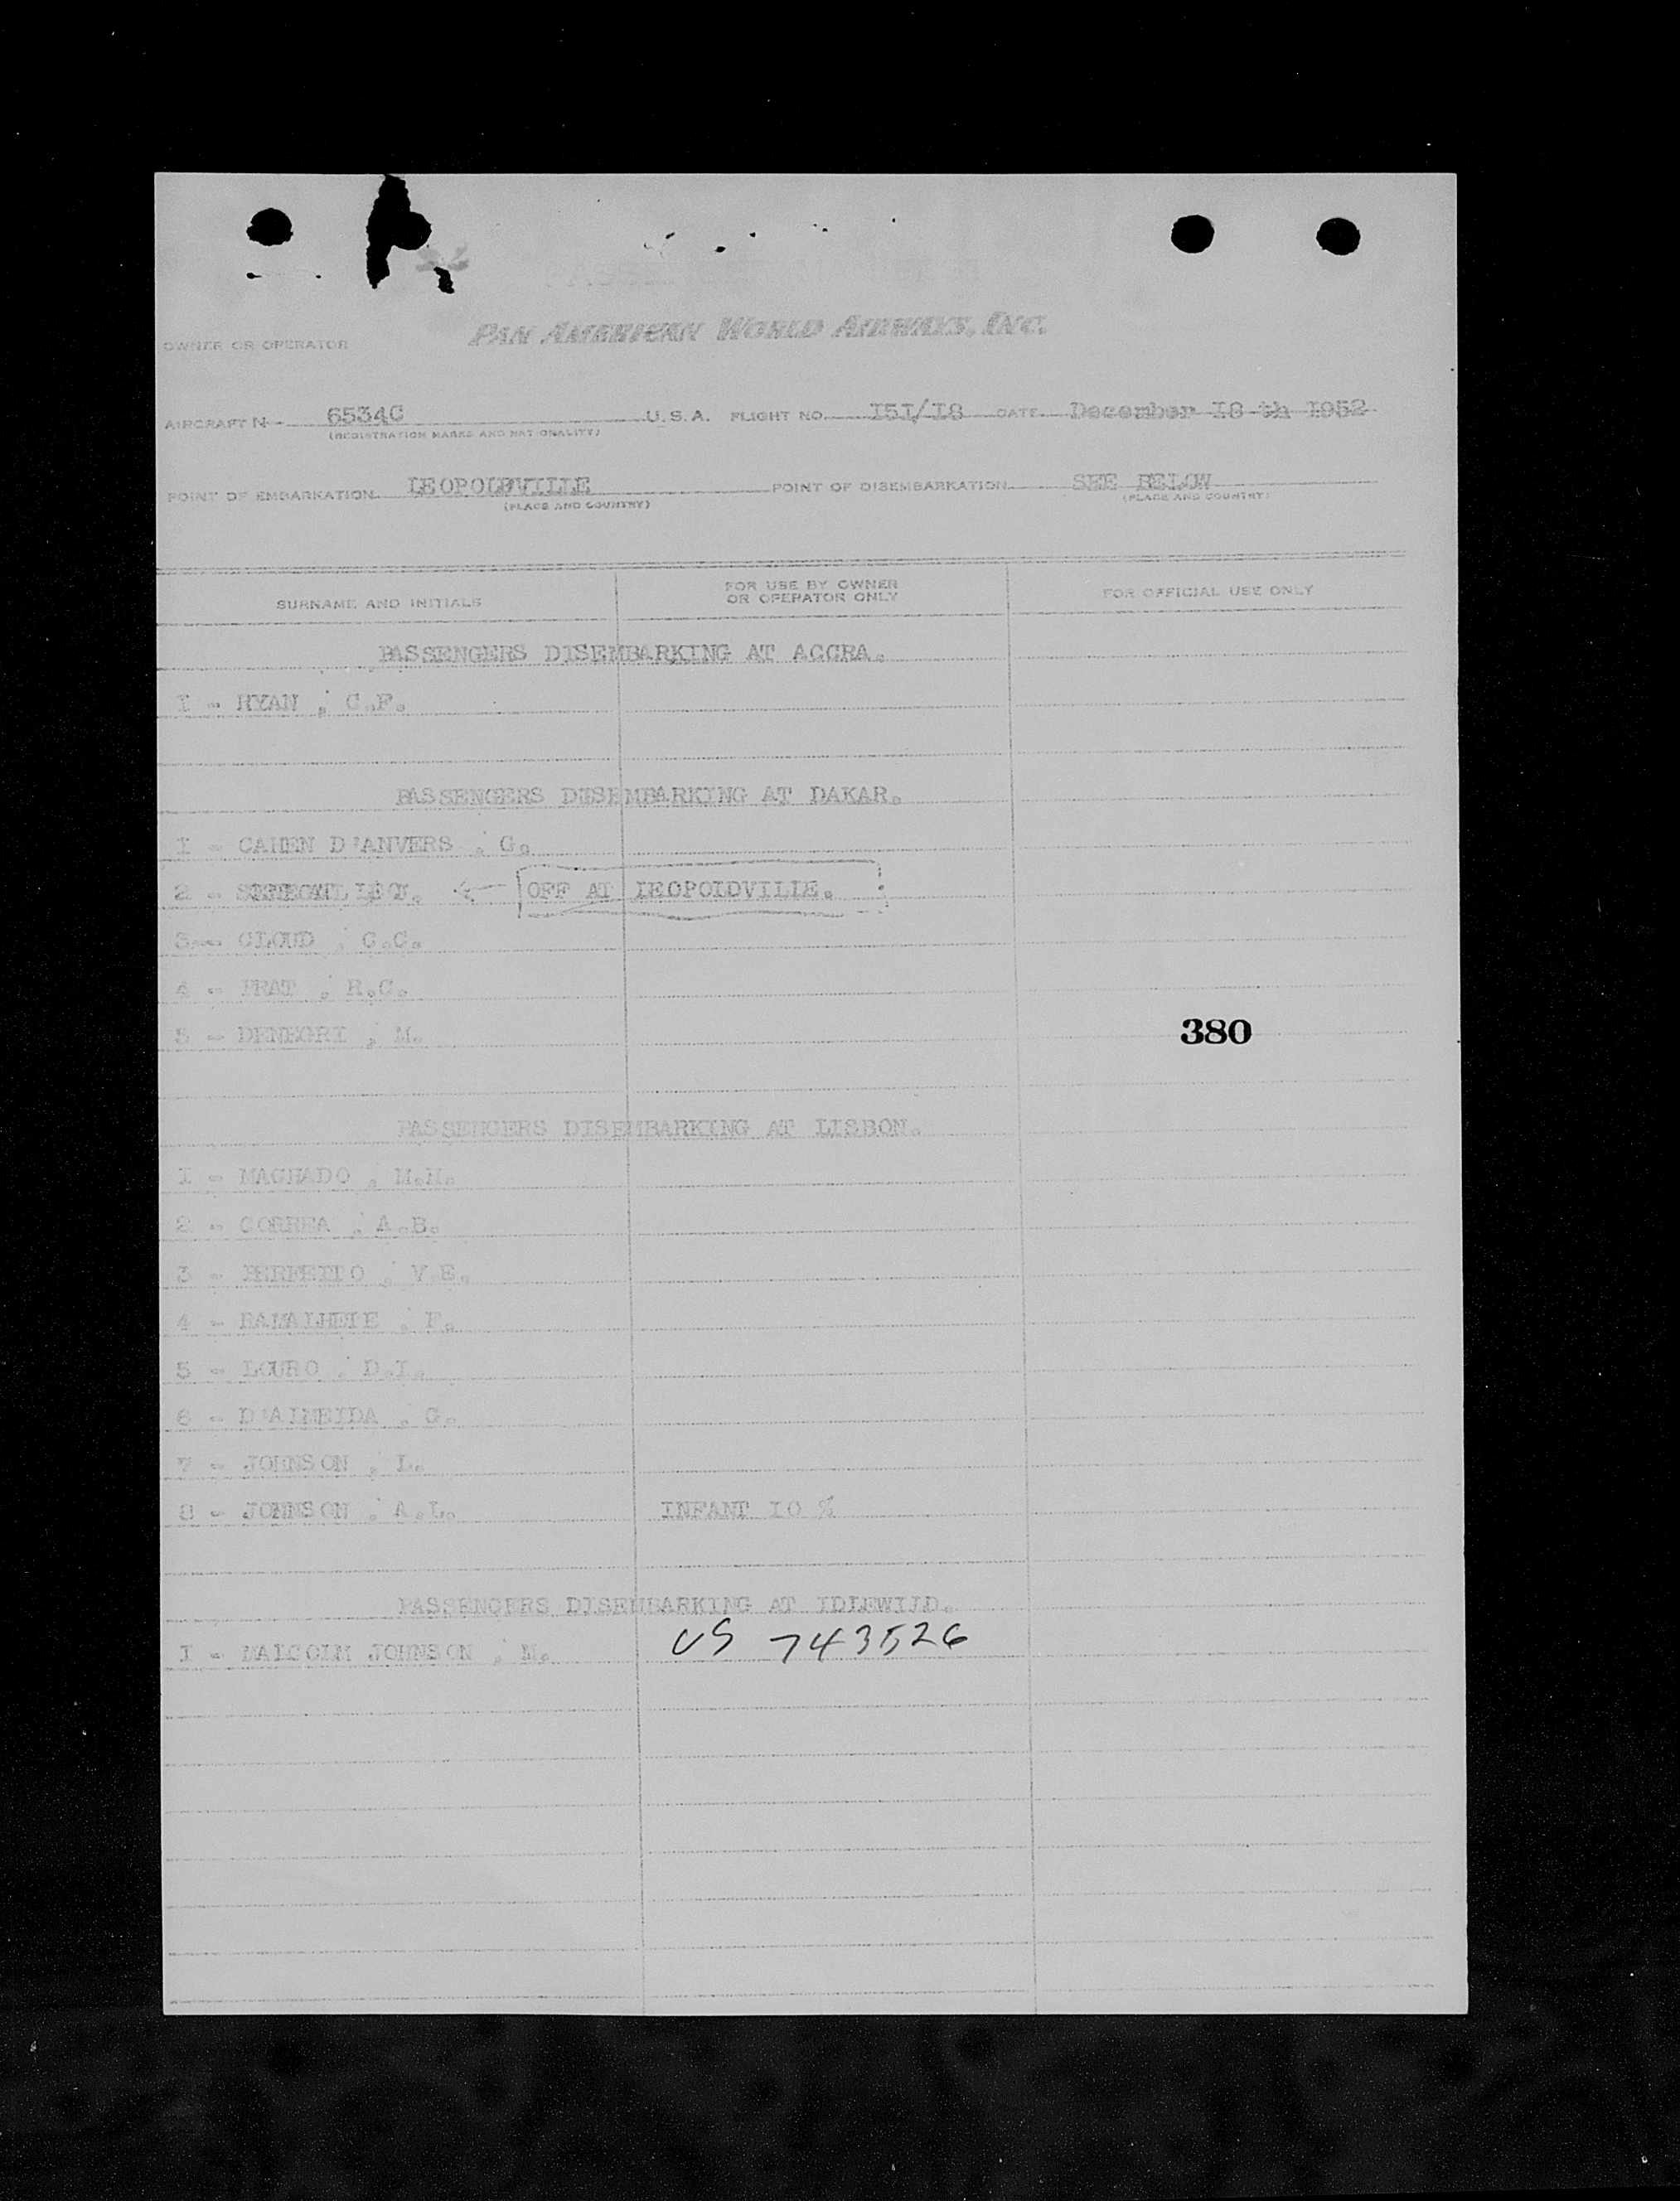 PAN AMERICAN WORLD AIRWAYS, INC.
OWNER OR OPERATOR
AIRCRAFT N- 6534C U.S.A. FLIGHT NO. I5I/I8 DATE December I8 th I952
(REGISTRATION MARKS AND NATIONALITY)
POINT OF EMBARKATION LEOPOLDVILLE POINT OF DISEMBARKATION SEE BELOW
(PLACE AND COUNTRY) (PLACE AND COUNTRY)
SURNAME AND INITIALS FOR USE BY OWNER OR OPERATOR ONLY FOR OFFICIAL USE ONLY
PASSENGERS DISEMBARKING AT ACCRA.
I - HYAN , C.F.
PASSENGERS DISEMBARKING AT DAKAR.
I - CAHEN D'ANVERS , G.
2 - OFF AT LEOPOLDVILLE.
3 - CLOUD , C.C.
4 - PRAT , R.C.
5 - DENEGRI , M.
380
PASSENGERS DISEMBARKING AT LISBON.
I - MACHADO , M.M.
2 - CORREA , A.B.
3 - PERFEITO , V.E.
4 - RAMALHETE , F.
5 - LOURO , D.I.
6 - D'ALMEIDA , G.
7 - JOHNSON , L.
8 - JOHNSON , A.L. INFANT IO %
PASSENGERS DISEMBARKING AT IDLEWILD.
I - MALCOLM JOHNSON , M. US 743526